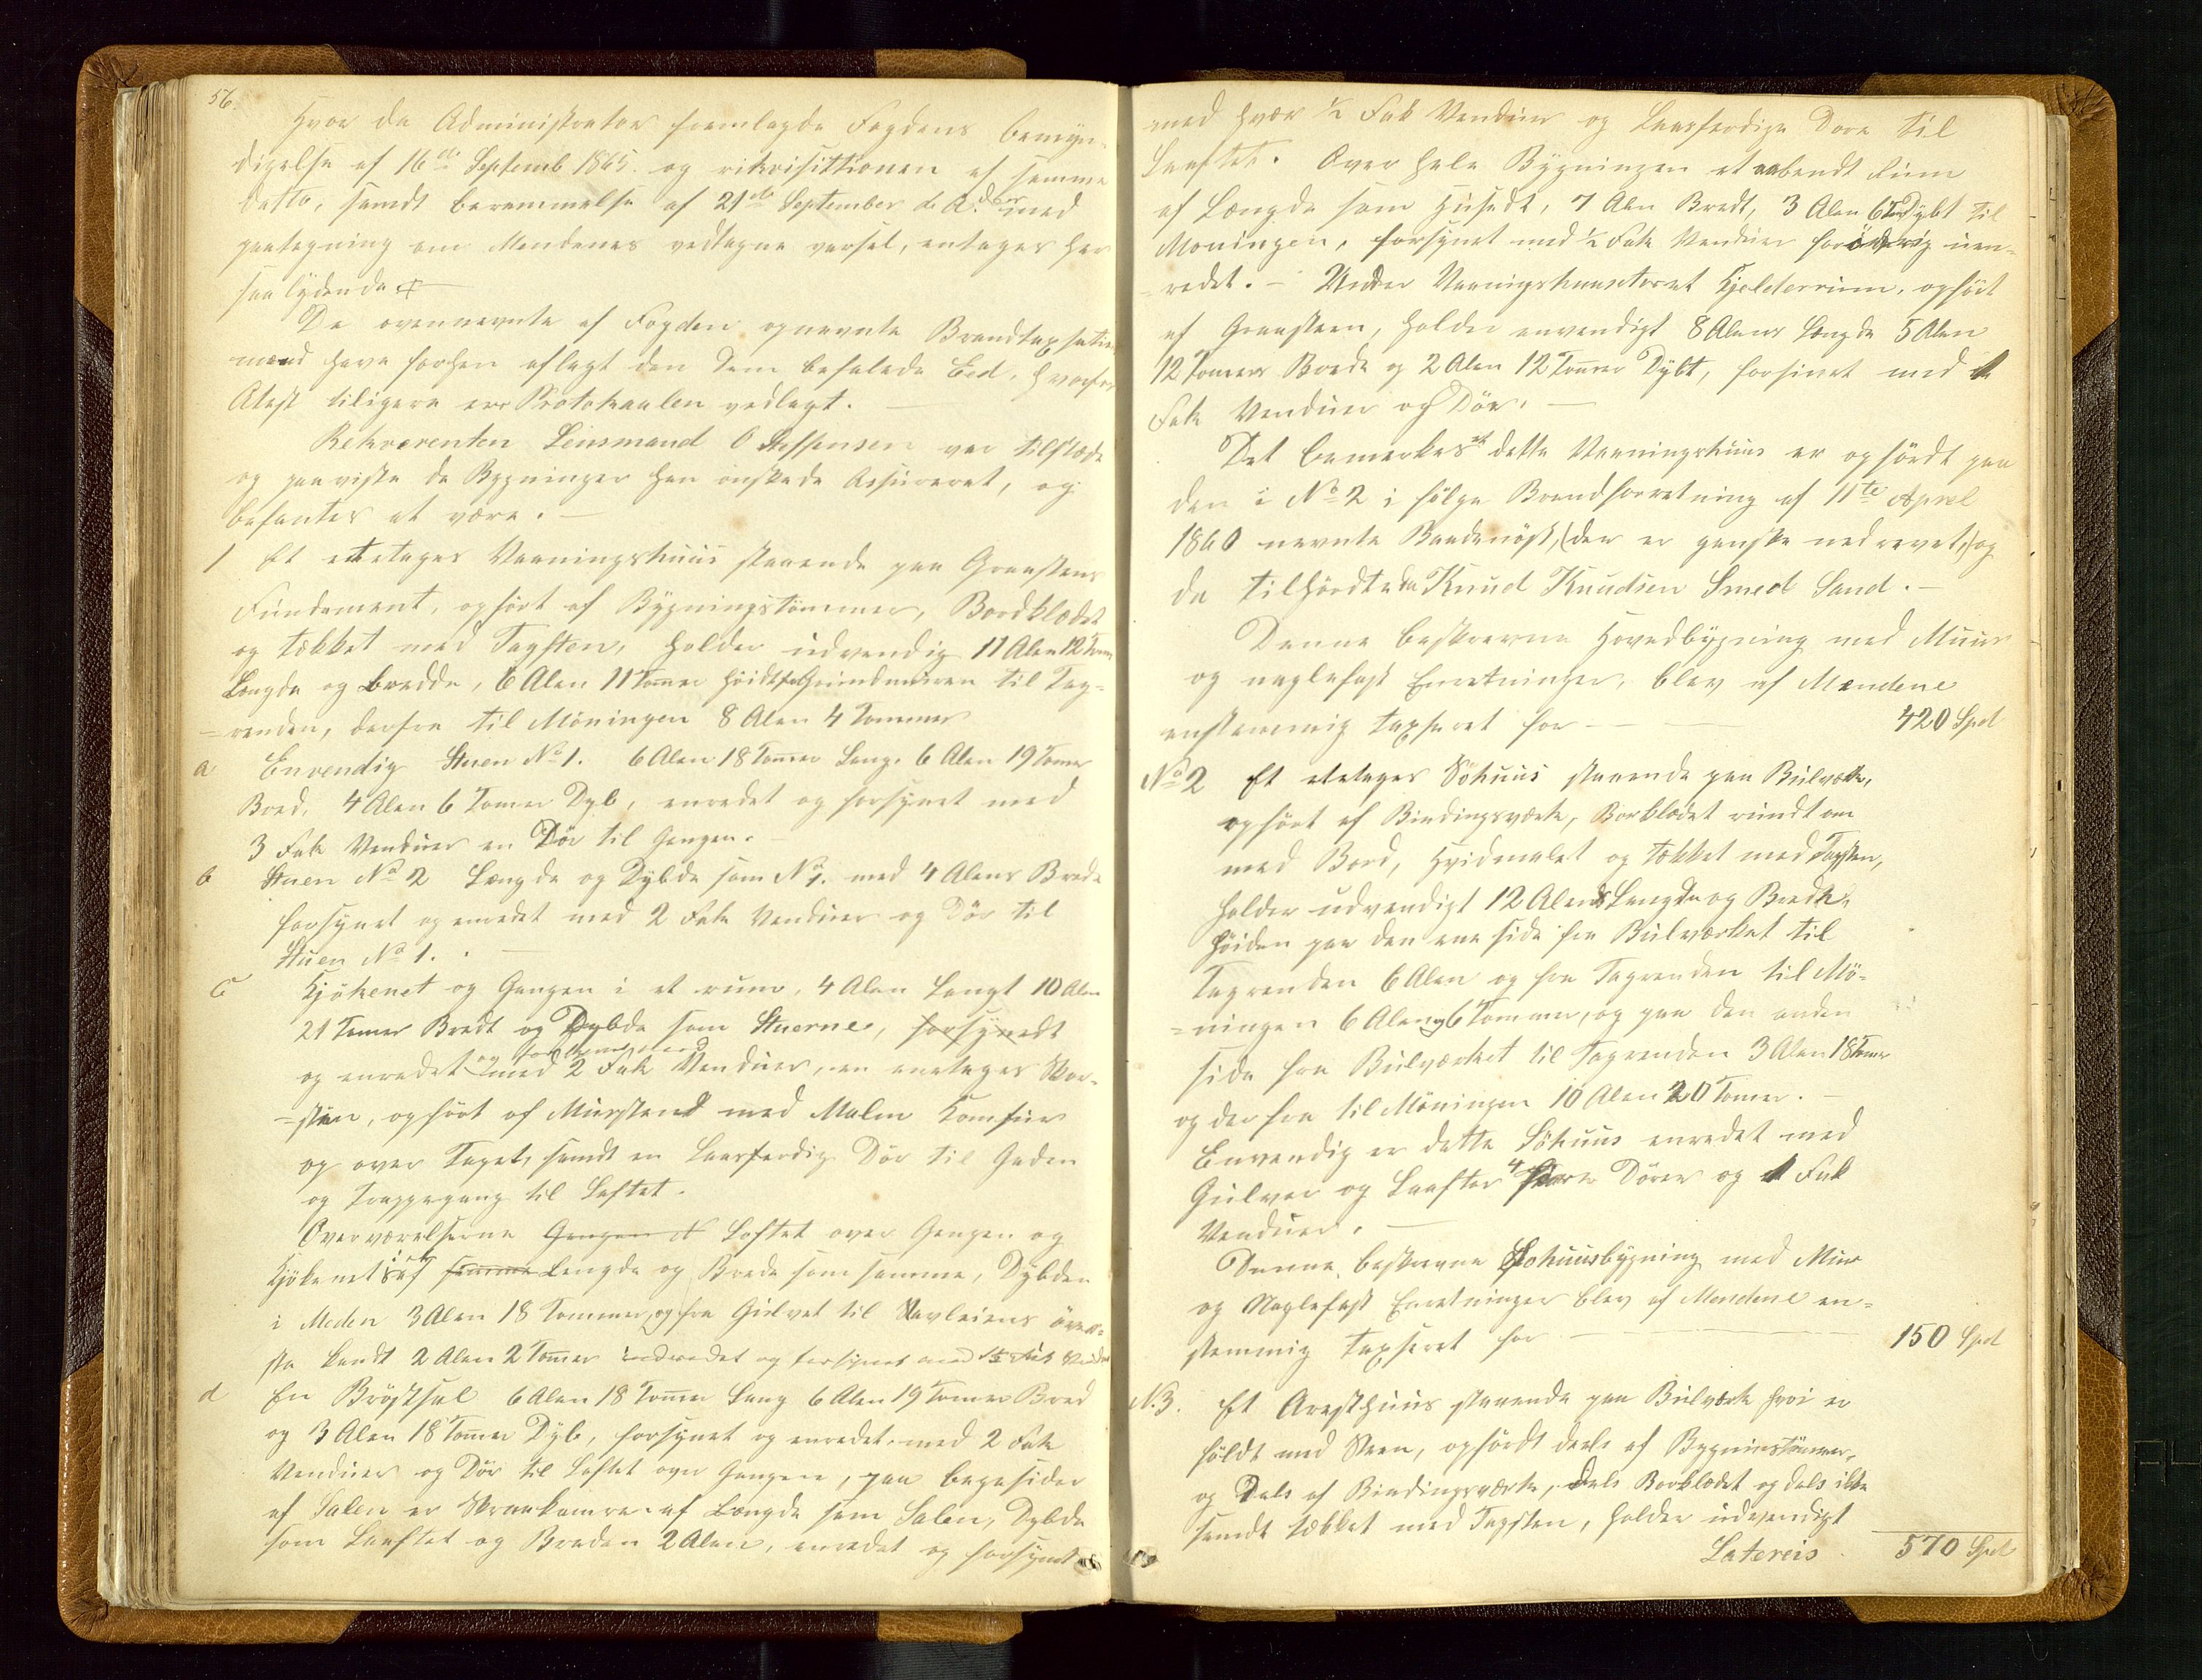 56.
Hvor da Administrator fremlagde Fogdens bemyn-
digelse af 16de Septemb 1865. og rikvisittionen af samme
datto, samdt berammelse af 21de September d. A. med
paategning om Mendenes vedtagne varsel, entages her
saa lydende
De ovennevnte af Fogden opnevnte Brandtaxsations
mænd have forhen aflagt den dem befalede Eed, hvorfor
Atest tiligere er Protokaalen vedlagt.
Rekvirenten Lensmand O Steffensen var tilstæde
og paaviste de Bygninger han ønskede Assureret, og
befantes at være. –
1 Et etetages Vaaningshuus staaende paa Graastens
Fundament, opført af Bygningstømmer, Bordklædet
og tækket med Tagsten, holder udvendig 11 Alen 12 Tom
Længde og Bredde, 6 Alen 11 Tommer Høidt fra Grundmuren til Tag-
=renden, derfra til Møningen 8 Alen 4 Tommer
a Envendig Stuen No 1. 6 Alen 18 Tommer Lang. 6 Alen 19 Tomer
Bred, 4 Alen 6 Tomer Dyb, enredet og forsynet med
3 Fak Venduer en Dør til Gangen. –
b Stuen No 2 Længde og Dybde som No 1. med 4 Alens Brede
forsynet og enredet med 2 Fak Venduer og Dør til
Stuen No 1.
c Kjøkenet og Gangen i et rum, 4 Alen Langt 10 Alen
21 Tomer Bredt og Dybde som Stuerne, forsynedt
og enredet og forsynet med 2 Fak Venduer, en eneetages Skor-
=sten, opført af Mursten med Malm Komfur
og over Taget, samdt en Laasferdig Dør til Gaden
og Trappegang til Loftet.
Overværelserne Gangen Loftet over Gangen og
Kjøkenet af samme Længde og Brede som samme, Dybden
i Meden 3 Alen 18 Tommer, og fra Gulvet til Stavleiens øver-
ste kandt 2 Alen 2 Tomer indredet og forsynet med Fak Vendu
d En Brøstsal 6 Alen 18 Tommer Lang 6 Alen 19 Tomer Bred
og 3 Alen 18 Tommer Dyb, forsynet og enredet med 2 Fak
Venduer og Dør til Loftet over Gangen, paa begesider
af Salen er Skraakamre af Længde som Salen, Dybde
som Laaftet og Breden 2 Alen, enredet og forsynet
med hver 1/2 Fak Venduer og Laasferdige Døre til
Laaftet. Over hele Bygningen et aabendt Rum
af Længde som Husedt, 7 Alen Bredt, 3 Alen 6 Tom Dybt til
Møningen, forsynet med 1/2 Fak Venduer forøvrig uen-
=redet. – Under Vaaningshuuset er et Kjelderrum, opført
af Graasteen, holder envendigt 8 Alens Længde 5 Alen
12 Tommers Brede og 2 Alen 12 Tommer Dybt, forsinet med 1
Fak Venduer og Dør. –
Det bemerkes at dette Vaaningshuus er opførdt paa
den i No 2 i følge Brandforretning af 11te Aprel
1860 nevnte Baadenøst, (der er ganske nedrevet,) og
da tilhørdte da Knud Knudsen Smed Sand. –
Denne beskrevne Hovedbygning med Muur
og naglefast Enretninger, blev af Mændene
enstemmig taxseret for – – 420 Spd
No 2 Et etetages Søhuus staaende paa Bulværk,
opført af Bindingsværk, Borklædet rundt om
med Bord, Hvidmalet og tækket med Tagsten,
holder udvendigt 12 Alens Længde og Brede,
Høiden paa den ene side fra Bulværket til
Tagrenden 6 Alen og fra Tagrenden til Mø-
=ningen 6 Alen og 6 Tommer, og paa den anden
side fra Bulværket til Tagrenden 3 Alen 18 Tomer
og derfra til Møningen 10 Alen 20 Tomer. –
Envendig er dette Søhuus enredet med
Gulver og Laafter 4 Døre og 1 Fak
Venduer. –
Denne beskrevne Søhuusbygning med Mur
og Naglefast Enretninger blev af Mendene en-
stemmig taxseret for – 150 Spd
N. 3. Et Aresthuus staaende paa Bulværk hvor er
fyldt med Steen, opførdt deels af Bygninstømmer,
og Dels af Bindingsværk, Dels Borklædet og dels ikke
samdt tækket med Tagsten, holder udvendigt
Latereis 570 Spd